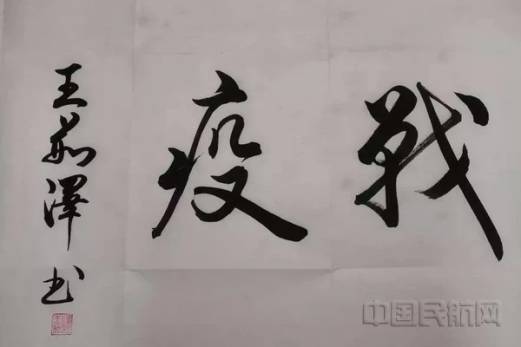 戰疫
王 澤书
中国民航网